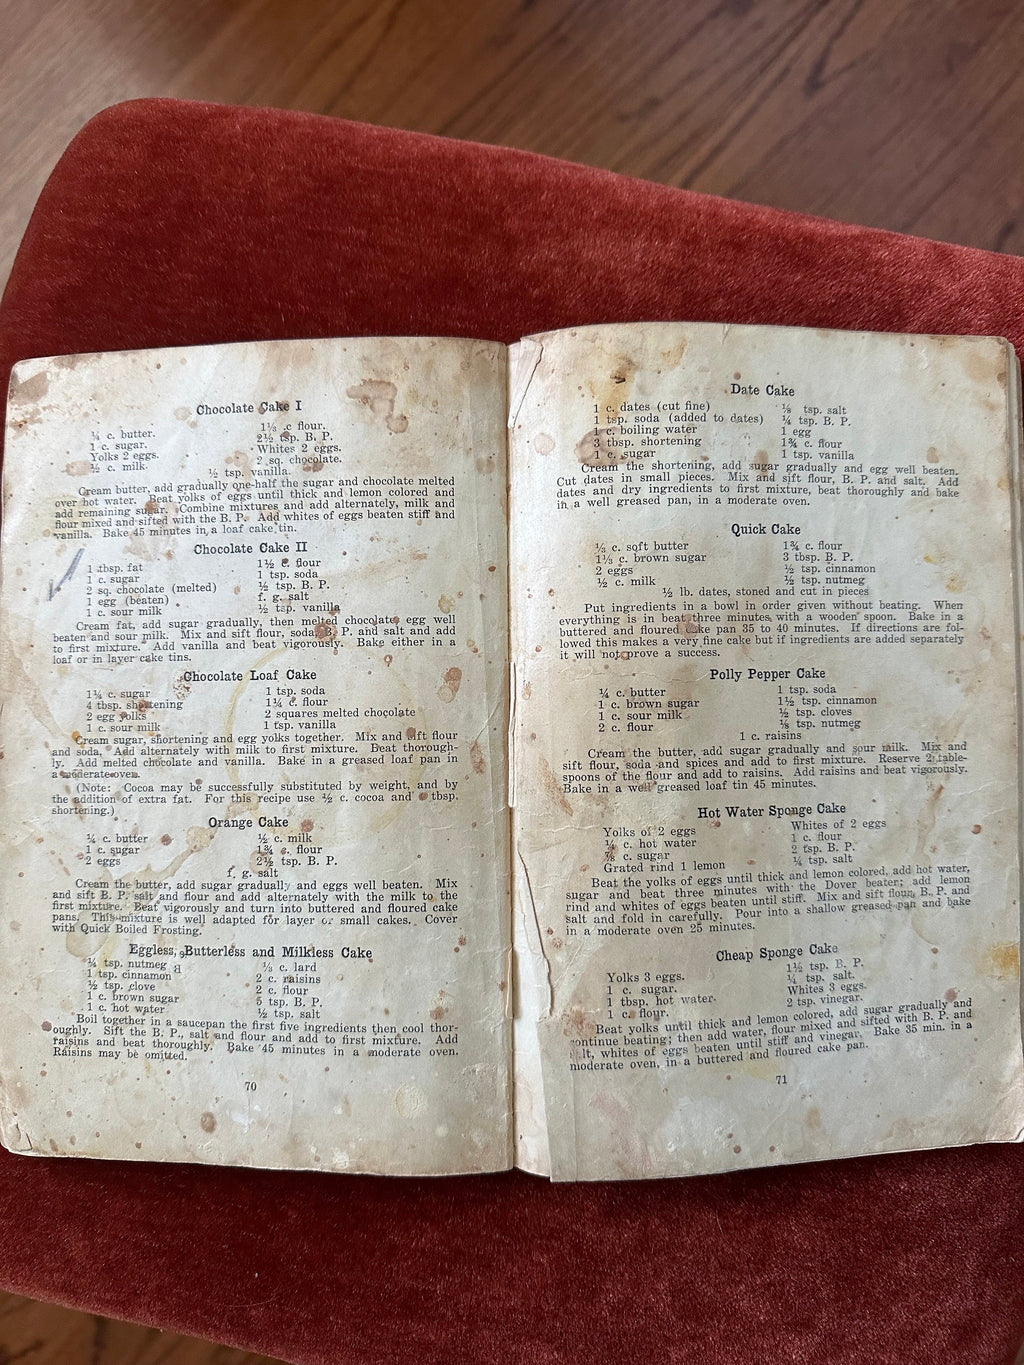 Chocolate Cake I
¼ c. butter.
1 c. sugar.
Yolks 2 eggs.
½ c. milk.
1⅓ c flour.
2½ tsp. B. P.
Whites 2 eggs.
2 sq. chocolate.
½ tsp. vanilla.
Cream butter, add gradually one-half the sugar and chocolate melted
over hot water. Beat yolks of eggs until thick and lemon colored and
add remaining sugar. Combine mixtures and add alternately, milk and
flour mixed and sifted with the B. P. Add whites of eggs beaten stiff and
vanilla. Bake 45 minutes in a loaf cake tin.
Chocolate Cake II
1 tbsp. fat
1 c. sugar
2 sq. chocolate (melted)
1 egg (beaten)
1 c. sour milk
1½ c. flour
1 tsp. soda
½ tsp. B. P.
f. g. salt
½ tsp. vanilla
Cream fat, add sugar gradually, then melted chocolate, egg well
beaten and sour milk. Mix and sift flour, soda, B. P. and salt and add
to first mixture. Add vanilla and beat vigorously. Bake either in a
loaf or in layer cake tins.
Chocolate Loaf Cake
1¼ c. sugar
4 tbsp. shortening
2 egg yolks
1 c. sour milk
1 tsp. soda
1¼ c. flour
2 squares melted chocolate
1 tsp. vanilla
Cream sugar, shortening and egg yolks together. Mix and sift flour
and soda. Add alternately with milk to first mixture. Beat thorough-
ly. Add melted chocolate and vanilla. Bake in a greased loaf pan in
a moderate oven.
(Note: Cocoa may be successfully substituted by weight, and by
the addition of extra fat. For this recipe use ½ c. cocoa and tbsp.
shortening.)
Orange Cake
¼ c. butter
1 c. sugar
2 eggs
½ c. milk
1¾ c. flour
2½ tsp. B. P.
f. g. salt
Cream the butter, add sugar gradually and eggs well beaten. Mix
and sift B. P. salt and flour and add alternately with the milk to the
first mixture. Beat vigorously and turn into buttered and floured cake
pans. This mixture is well adapted for layer or small cakes. Cover
with Quick Boiled Frosting.
Eggless, Butterless and Milkless Cake
¼ tsp. nutmeg
1 tsp. cinnamon
½ tsp. clove
1 c. brown sugar
1 c. hot water
⅓ c. lard
2 c. raisins
2 c. flour
5 tsp. B. P.
½ tsp. salt
Boil together in a saucepan the first five ingredients then cool thor-
oughly. Sift the B. P., salt and flour and add to first mixture. Add
raisins and beat thoroughly. Bake 45 minutes in a moderate oven.
Raisins may be omitted.
70
Date Cake
1 c. dates (cut fine)
1 tsp. soda (added to dates)
1 c. boiling water
3 tbsp. shortening
1 c. sugar
⅛ tsp. salt
¼ tsp. B. P.
1 egg
1¾ c. flour
1 tsp. vanilla
Cream the shortening, add sugar gradually and egg well beaten.
Cut dates in small pieces. Mix and sift flour, B. P. and salt. Add
dates and dry ingredients to first mixture, beat thoroughly and bake
in a well greased pan, in a moderate oven.
Quick Cake
⅓ c. soft butter
1⅓ c. brown sugar
2 eggs
½ c. milk
1¾ c. flour
3 tbsp. B. P.
½ tsp. cinnamon
½ tsp. nutmeg
½ lb. dates, stoned and cut in pieces
Put ingredients in a bowl in order given without beating. When
everything is in beat three minutes with a wooden spoon. Bake in a
buttered and floured cake pan 35 to 40 minutes. If directions are fol-
lowed this makes a very fine cake but if ingredients are added separately
it will not prove a success.
Polly Pepper Cake
¼ c. butter
1 c. brown sugar
1 c. sour milk
2 c. flour
1 tsp. soda
1½ tsp. cinnamon
½ tsp. cloves
⅛ tsp. nutmeg
1 c. raisins
Cream the butter, add sugar gradually and sour milk. Mix and
sift flour, soda and spices and add to first mixture. Reserve 2 table-
spoons of the flour and add to raisins. Add raisins and beat vigorously.
Bake in a well greased loaf tin 45 minutes.
Hot Water Sponge Cake
Yolks of 2 eggs
¼ c. hot water
⅞ c. sugar
Grated rind 1 lemon
Whites of 2 eggs
1 c. flour
2 tsp. B. P.
¼ tsp. salt
Beat the yolks of eggs until thick and lemon colored, add hot water,
sugar and beat three minutes with the Dover beater; add lemon
rind and whites of eggs beaten until stiff. Mix and sift flour, B. P. and
salt and fold in carefully. Pour into a shallow greased pan and bake
in a moderate oven 25 minutes.
Cheap Sponge Cake
Yolks 3 eggs.
1 c. sugar.
1 tbsp. hot water.
1 c. flour.
1½ tsp. B. P.
¼ tsp. salt.
Whites 3 eggs.
2 tsp. vinegar.
Beat yolks until thick and lemon colored, add sugar gradually and
continue beating; then add water, flour mixed and sifted with B. P. and
salt, whites of eggs beaten until stiff and vinegar. Bake 35 min. in a
moderate oven, in a buttered and floured cake pan.
71